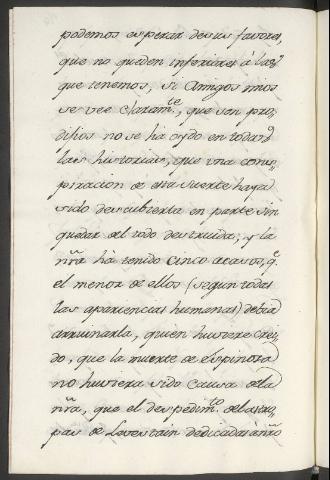 podemos esperar de sus favores,
que no queden inferiores à las q.
que tenemos, si Amigos mios
se vee claram.te, que son pro,
difios no se ha oydo en todas
las historias, que vna cons,
piracion de esta suerte haya
sido descubierta en parte sin
quedar del todo destruida; y la
nr̃a ha tenido cinco acasos, q.e
el menor de ellos (segun todas
las apariencias humanas) debia
arruinarla, quien huviere crei,
do, que la muerte de Espinosa
no huviera sido causa de la
nr̃a, que el despedim.to de las tro,
pas de Liverstain dedicadas à nr̃o